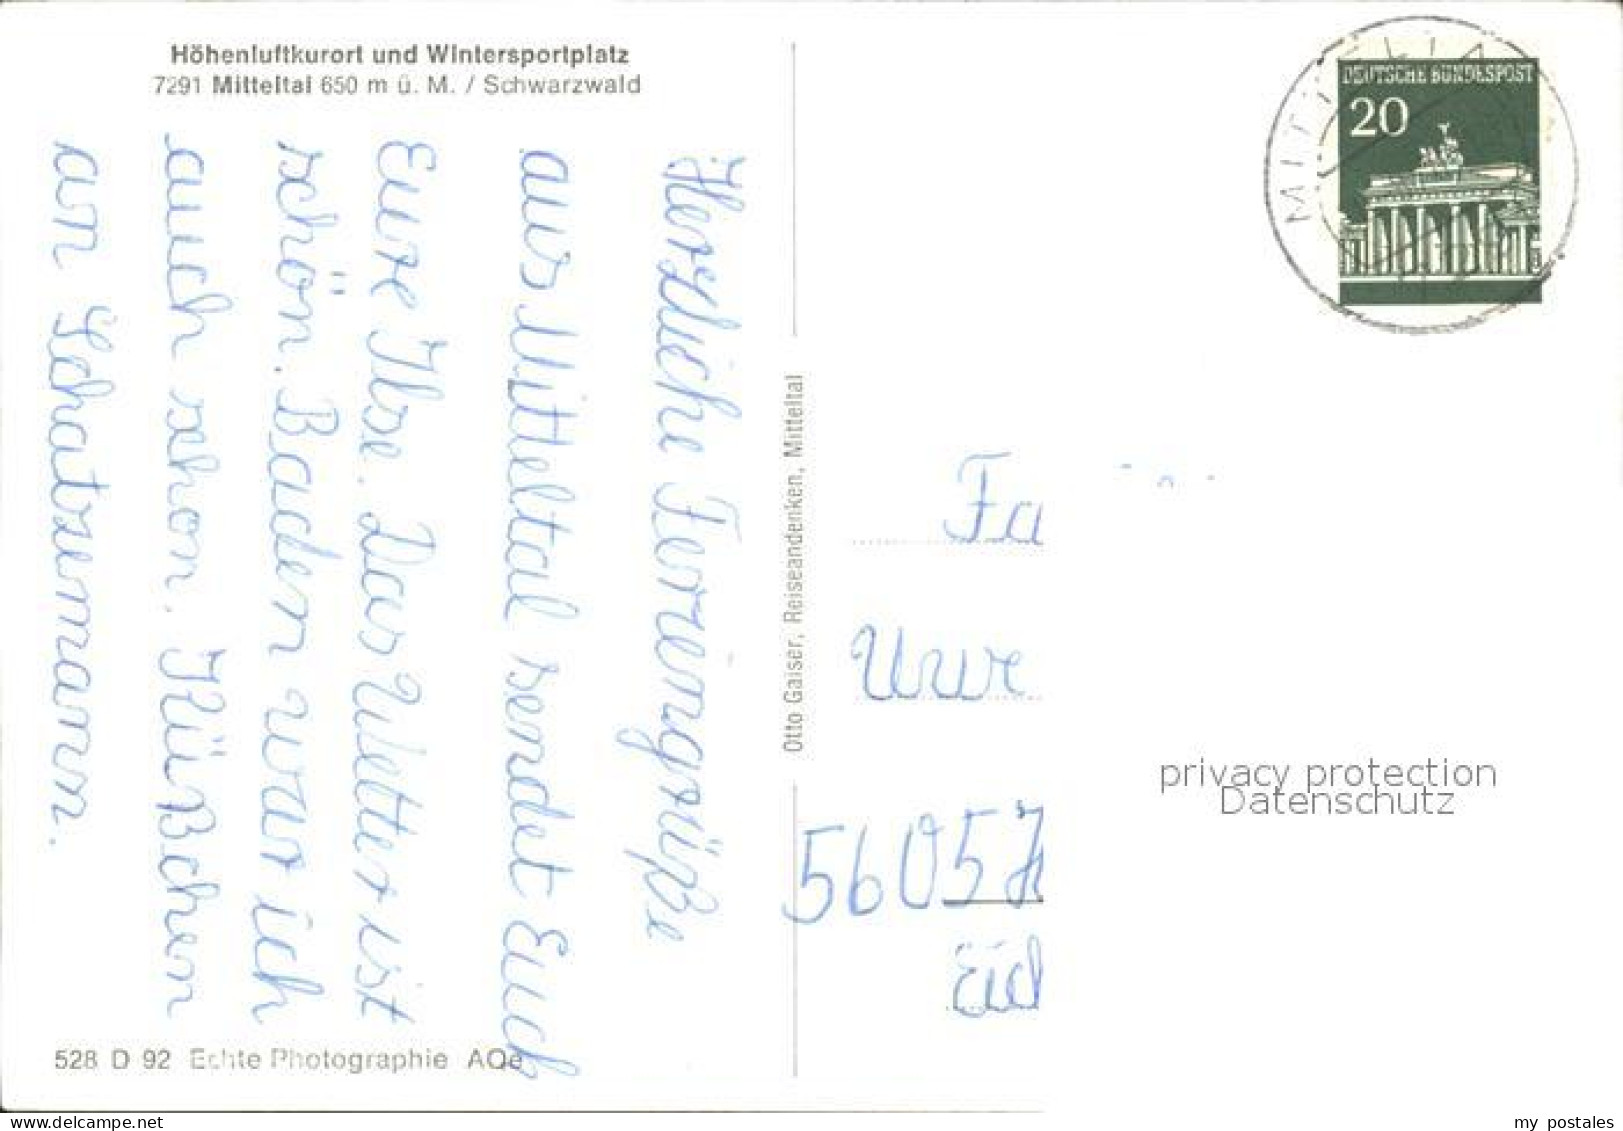 Höhenluftkurort und Wintersportplatz
7291 Mitteltal 650 m ü. M. / Schwarzwald
Herzliche Feriengrüße
aus Mitteltal sendet Euch
Eure Ilse. Das Wetter ist
schön. Baden war ich
auch schon. Küßchen
an Schatzemann.
528 D 92 Echte Photographie AQe
Otto Gaiser, Reiseandenken, Mitteltal
DEUTSCHE BUNDESPOST
20
Fa
Uwe
5605
Eich
privacy protection
Datenschutz
www.delcampe.net
my_postales